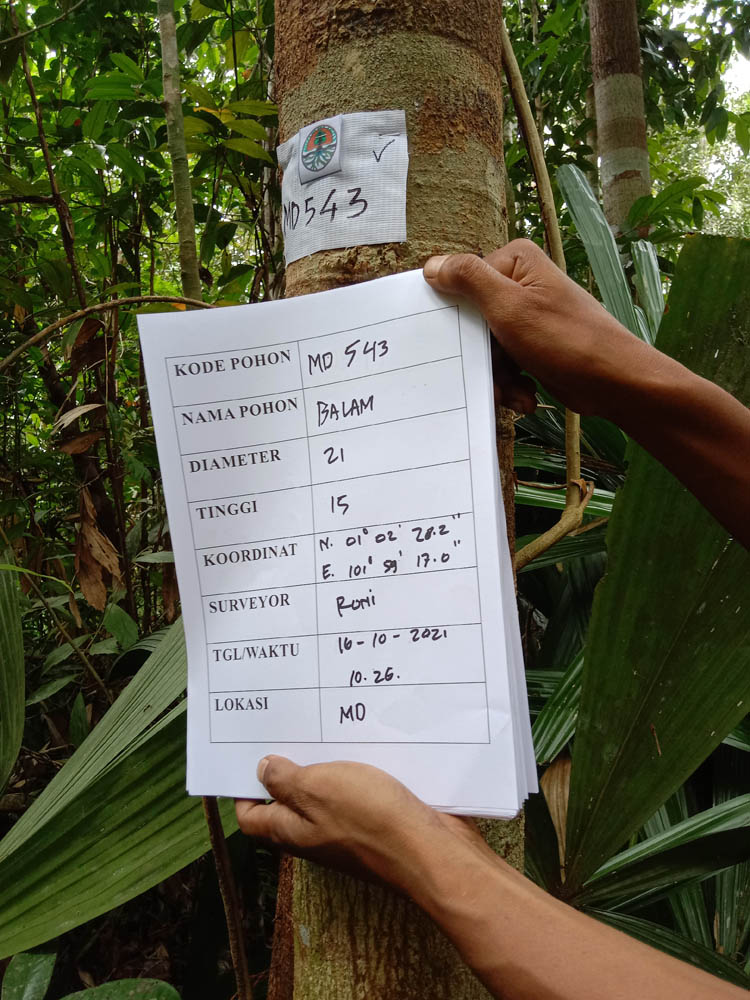 MD543
KODE POHON MD 543
NAMA POHON BALAM
DIAMETER 21
TINGGI 15
KOORDINAT N. 01° 02' 28.2"
E. 101° 59' 17.0"
SURVEYOR Roni
TGL/WAKTU 16-10-2021
10.26.
LOKASI MD